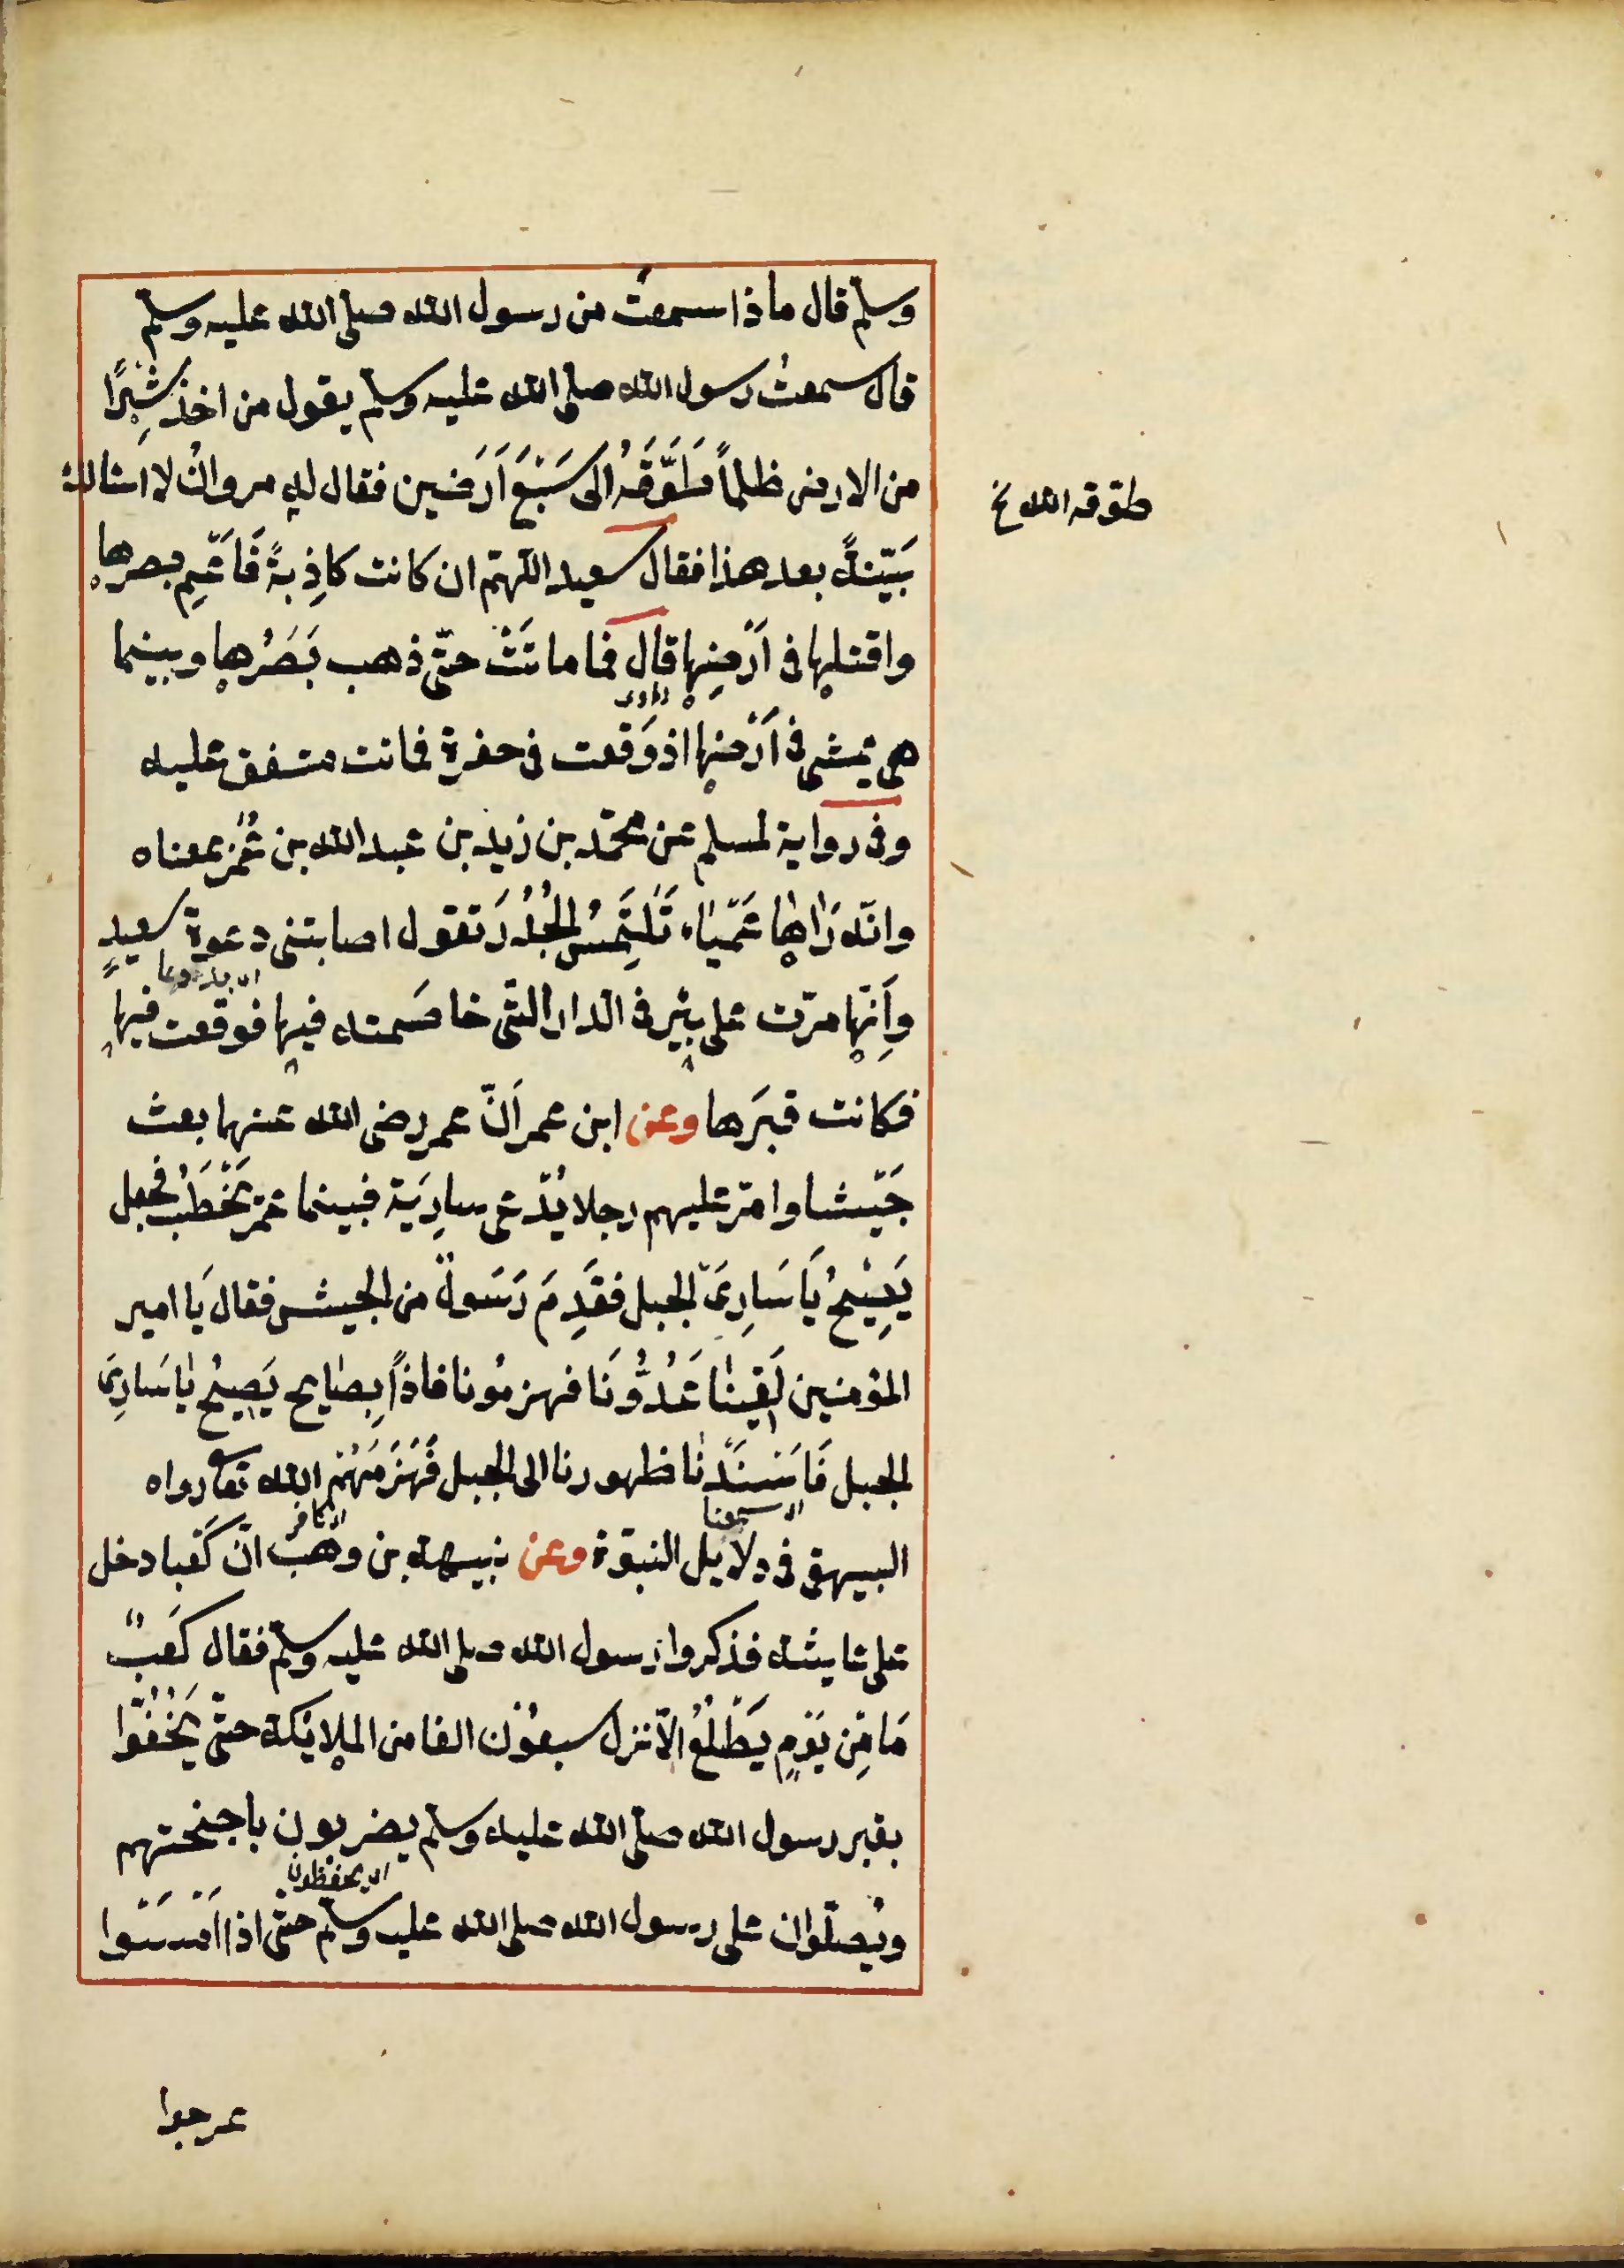 وسلم قال ماذا سمعتَ من رسول الله صلى الله عليه وسلم
قال سمعتُ رسول الله صلى الله عليه وسلم يقول من اخذ شِبْرًا
من الارض ظلماً طَوَّقَهُ الى سَبْعِ اَرَضين فقال له مروانُ لا اسٔالك
طوّقه الله نخ
بَيّنةً بعد هذا فقال سعيد اللّهمّ ان كانت كاذِبةً فَاَعْمِ بصرها
واقتلها فى اَرْضِها قال فما ماتَتْ حتّى ذهب بَصَرُها وبينما
الراوى
هى تمشى فى اَرْضِها اذ وَقعت فى حفرة فماتت متفق عليه
وفى رواية لمسلم عن محمّد بن زيد بن عبد الله بن عُمَر بمعناه
وانّه رَاٰها عَمْيَاء تَلْتَمِسُ الجُدُرَ تقول اصابتنى دعوة سعيدٍ
وَاَنّها مرّت على بِئر فى الدار الّتى خاصَمته فيها فوقعت فيها
فكانت قبرَها وعن ابن عمر اَنّ عمر رضى الله عنهما بعث
جَيْشا وامّر عليهم رجلا يُدْعى سارِيَة فبينما عمَر يَخْطُبُ فجعل
يَصِيْحُ يَا سَارِىَ الجبل فقَدِمَ رَسَولٌ من الجيش فقال يَا امير
المؤمنين لَقِينا عَدُوُّنَا فهزمُونا فاذاً بِصَايح يَصِيحُ يا سَارِىَ
الجبل فَاَسْنَدْنا ظهورنا الى الجبل فَهَزَمَهُمُ الله تعا رواه
البيهقى فى دلايل النبوّة وعن نبيهة بن وهْب انّ كَعْبا دخل
على عايشة فذكروا رسول الله صلى الله عليه وسلم فقال كَعبٌ
مَا مِن يَوْمٍ يَطْلُعُ الّا نزل سبعُوْن الفا من الملائكة حتّى يَحُفُّوا
بقبر رسول الله صلى الله عليه وسلم يضربون باجنحتهم
اى يحفظون
ويُصلّوان على رسول الله صلى الله عليه وسلم حتّى اذا اَمْسَوا
عرجوا